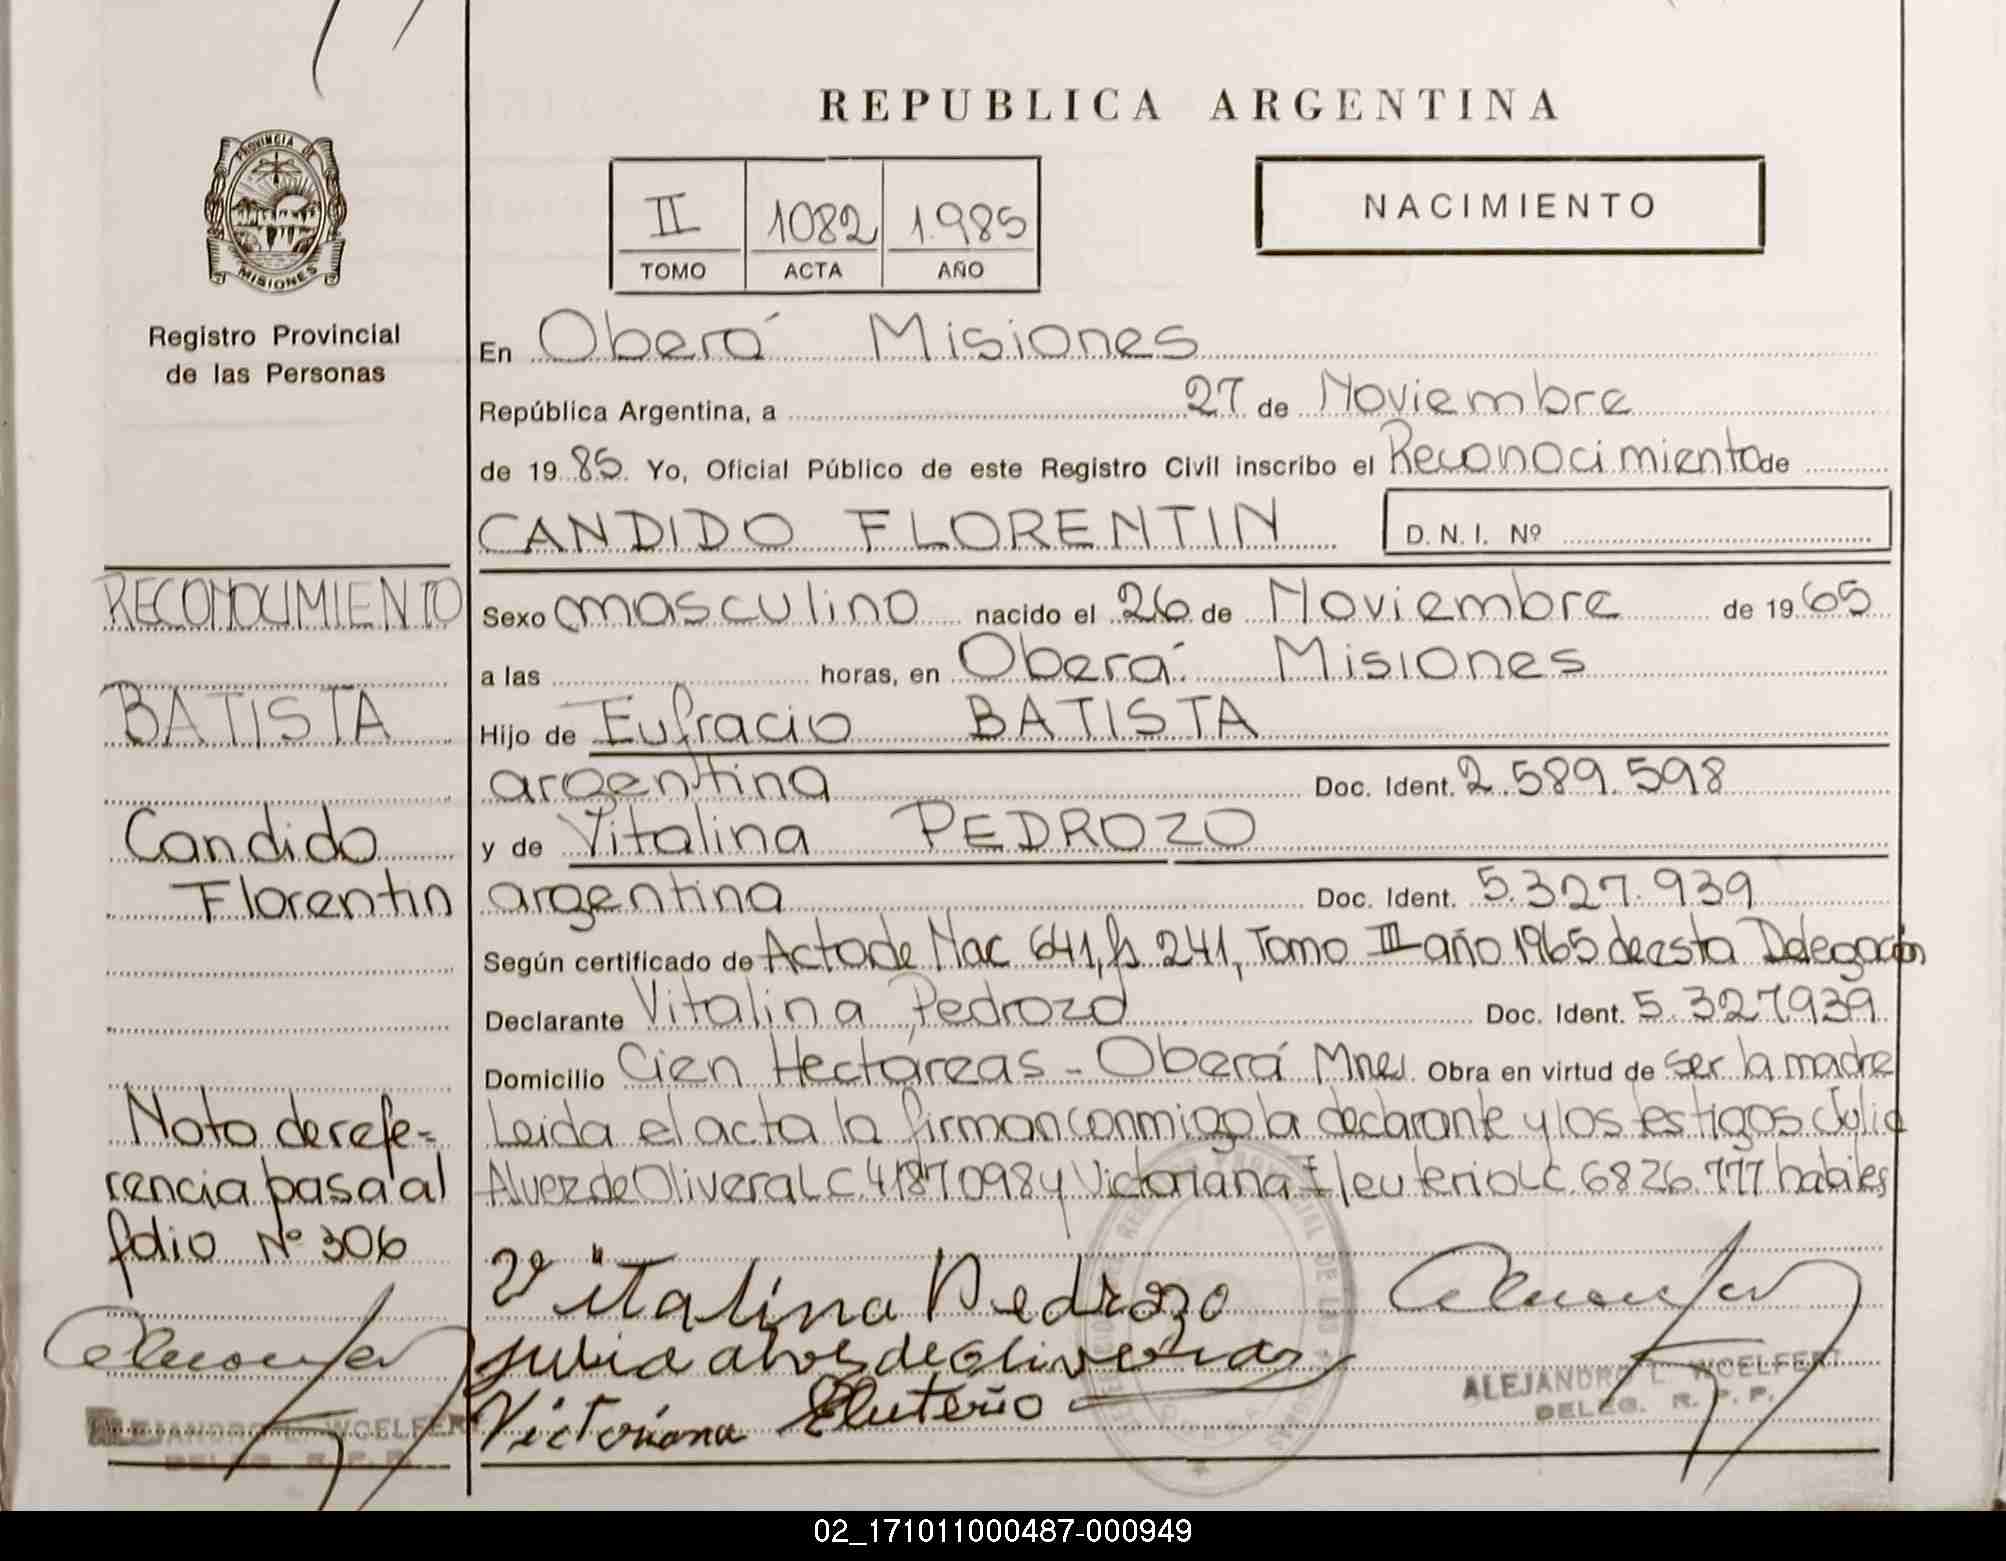 REPUBLICA ARGENTINA
PROVINCIA DE
MISIONES
Registro Provincial
de las Personas
II 1082 1.985
TOMO ACTA AÑO
NACIMIENTO
En Oberá Misiones
República Argentina, a 27 de Noviembre
de 19 85. Yo, Oficial Público de este Registro Civil inscribo el Reconocimiento de
CANDIDO FLORENTIN D. N. I. Nº
RECONOCIMIENTO
BATISTA
Candido
Florentin
Nota de refe-
rencia pasa al
folio Nº 306
ALEJANDRO L. WOELFERT
DELEG. R. P. P.
Sexo masculino nacido el 26 de Noviembre de 19 65
a las horas, en Oberá Misiones
Hijo de Eufracio BATISTA
argentina Doc. Ident. 2.589.598
y de Vitalina PEDROZO
argentina Doc. Ident. 5.327.939
Según certificado de Acta de Nac 641, fs 241, Tomo III año 1965 de esta Delegación
Declarante Vitalina Pedrozo Doc. Ident. 5.327.939
Domicilio Cien Hectáreas - Oberá Mnes. Obra en virtud de ser la madre
Leida el acta la firman conmigo la declarante y los testigos Julia
Alvez de Olivera LC 4187098 y Victoriana Eleuterio LC. 6826777 habiles
Vitalina Pedrozo
Julia alves de oliveira
Victoriana Eluterio
ALEJANDRO L. WOELFERT
DELEG. R. P. P.
02_171011000487-000949